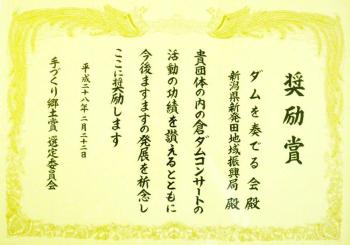 奨励賞
ダムを奏でる会 殿
新潟県新発田地域振興局 殿
貴団体の内の倉ダムコンサートの
活動の功績を讃えるとともに
今後ますますの発展を祈念し
ここに奨励します
平成二十八年二月二十二日
手づくり郷土賞 選定委員会